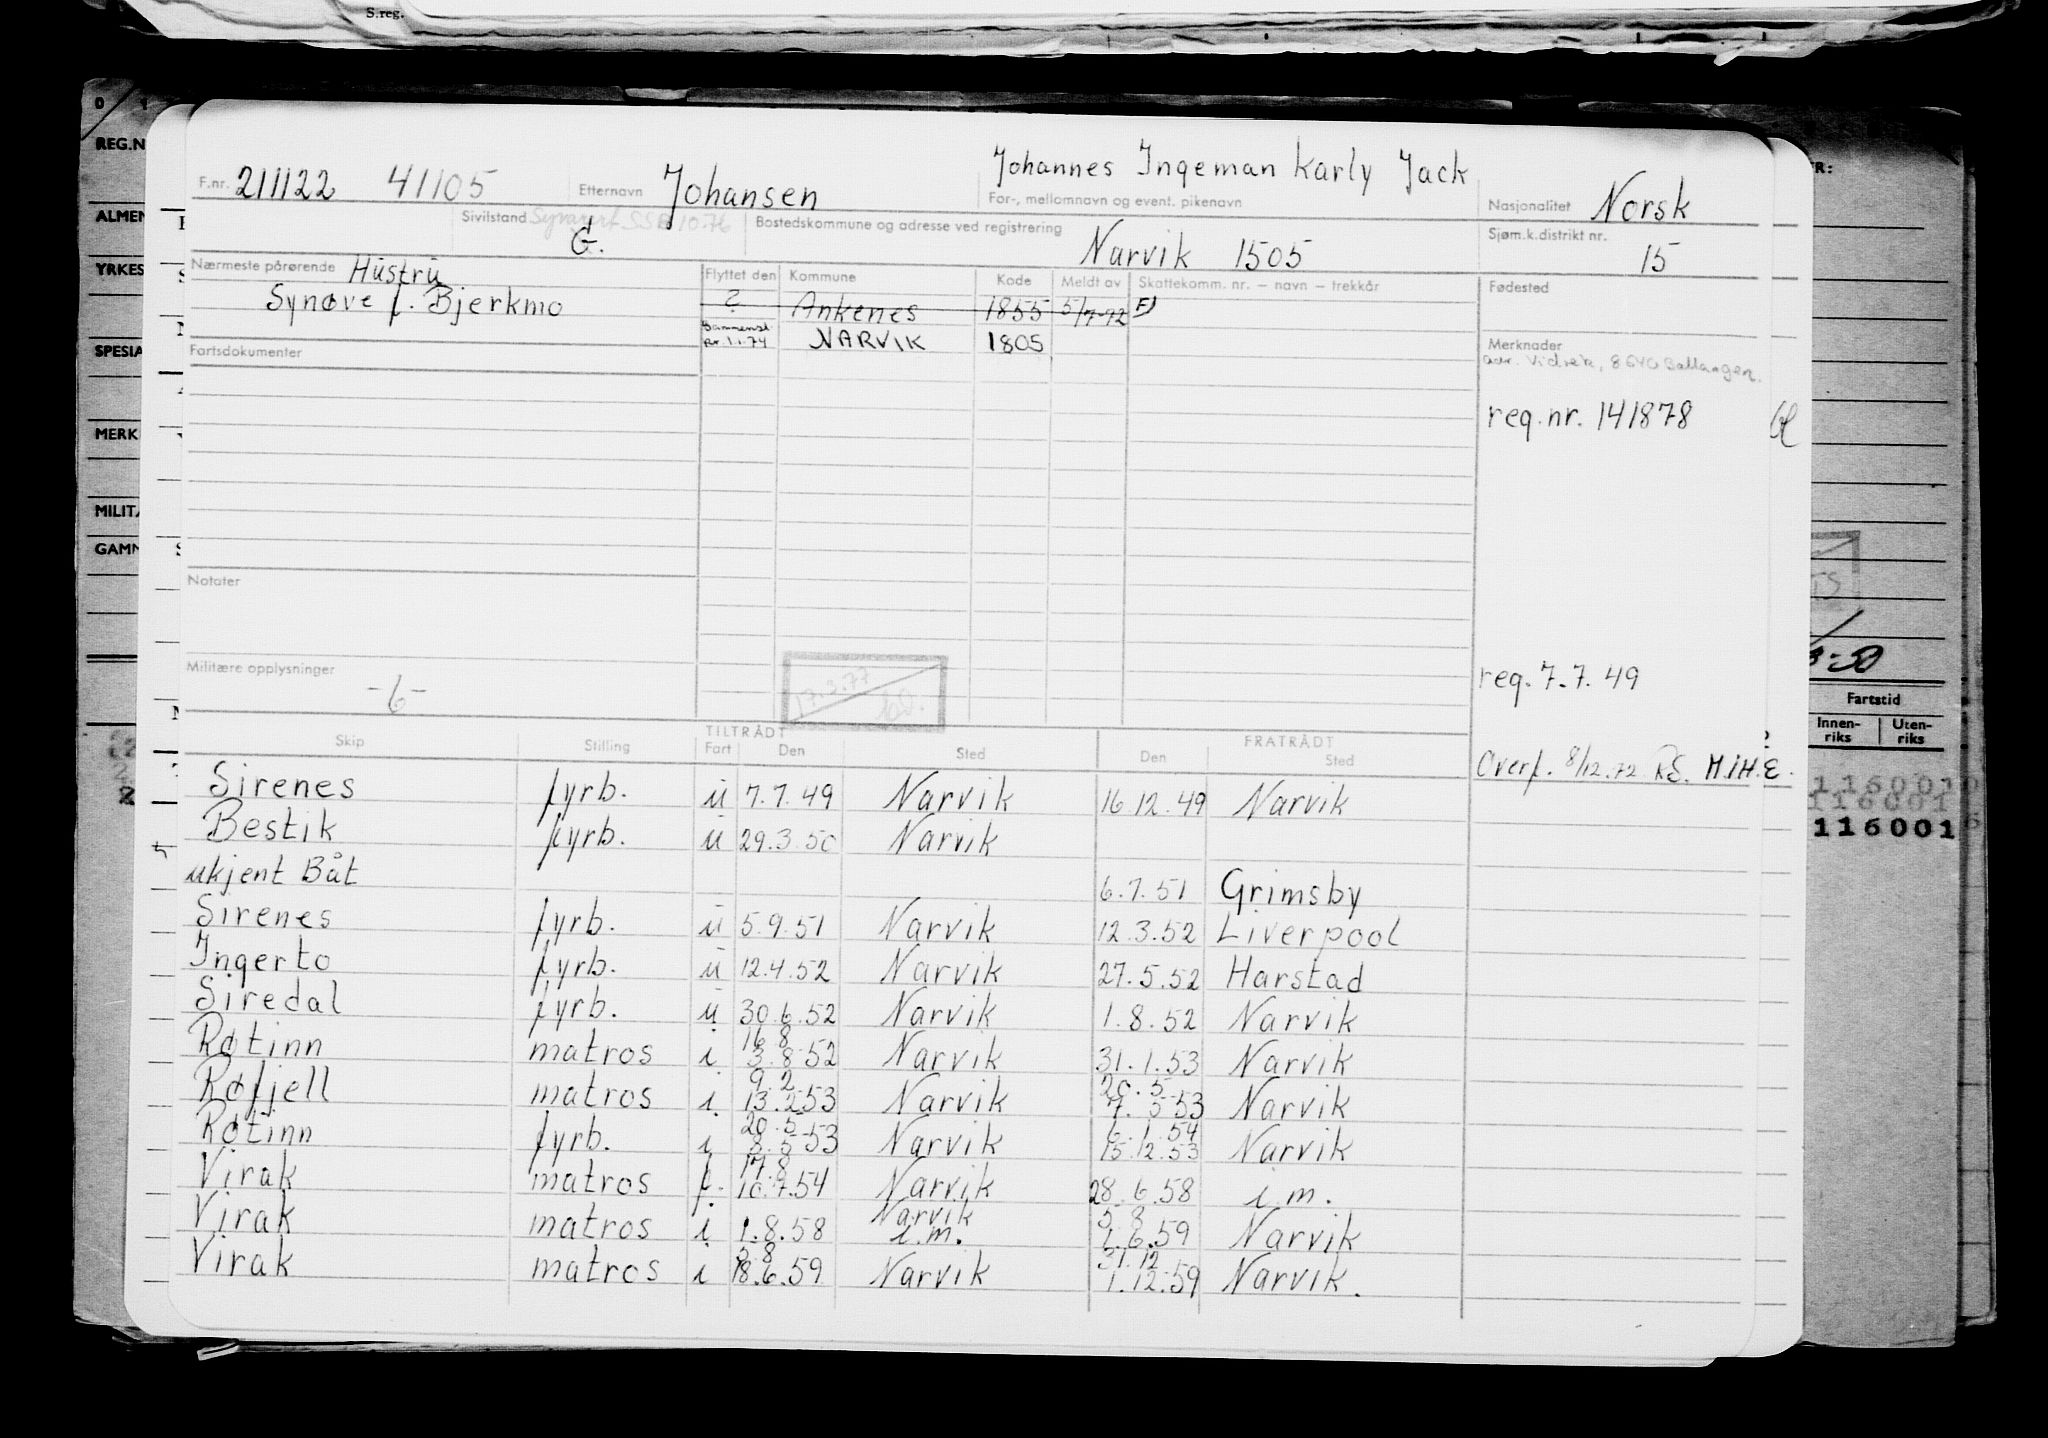 S.reg.
REG.N
ALMEN
YRKES
SPESIA
MERK
MILITÆ
GAMM
F.nr. 211122 41105 Etternavn Johansen Johannes Ingeman Karly Jack
For-, mellomnavn og event. pikenavn
Nasjonalitet Norsk
Sivilstand G.
Bostedskommune og adresse ved registrering Narvik 1505
Sjøm.k.distrikt nr. 15
Nærmeste pårørende Hustru
Synøve f. Bjerkmo
Flyttet den Kommune Kode Meldt av Skattekomm. nr. – navn – trekkår
? Ankenes 1855 5/7-72
Sammensl. pr. 1.1.74 NARVIK 1805
Fødested
Fartsdokumenter
Merknader
adr. Vidrek, 8540 Ballangen.
reg.nr. 141878
Notater
Militære opplysninger
-6-
17.3.77
reg. 7.7.49
Overf. 8/12.72 RS. M.IH.E.
Skip Stilling TILTRÅDT Fart Den Sted FRATRÅDT Den Sted
Sirenes fyrb. u 7.7.49 Narvik 16.12.49 Narvik
Bestik fyrb. u 29.3.50 Narvik
ukjent Båt 6.7.51 Grimsby
Sirenes fyrb. u 5.9.51 Narvik 12.3.52 Liverpool
Ingerto fyrb. u 12.4.52 Narvik 27.5.52 Harstad
Siredal fyrb. u 30.6.52 Narvik 1.8.52 Narvik
16.8
Røtinn matros i 3.8.52 Narvik 31.1.53 Narvik
9.2 20.5
Røfjell matros i 13.2.53 Narvik 7.5.53 Narvik
20.5 6.1.54
Røtinn fyrb. i 8.5.53 Narvik 15.12.53 Narvik
17.8
Virak matros f. 10.7.54 Narvik 28.6.58 i.m.
Narvik 5.8
Virak matros i 1.8.58 i.m. 1.6.59 Narvik
5.8 31.12
Virak matros i 18.6.59 Narvik 1.12.59 Narvik.
Fartstid
Innen-riks Uten-riks
1160010
116001
116001